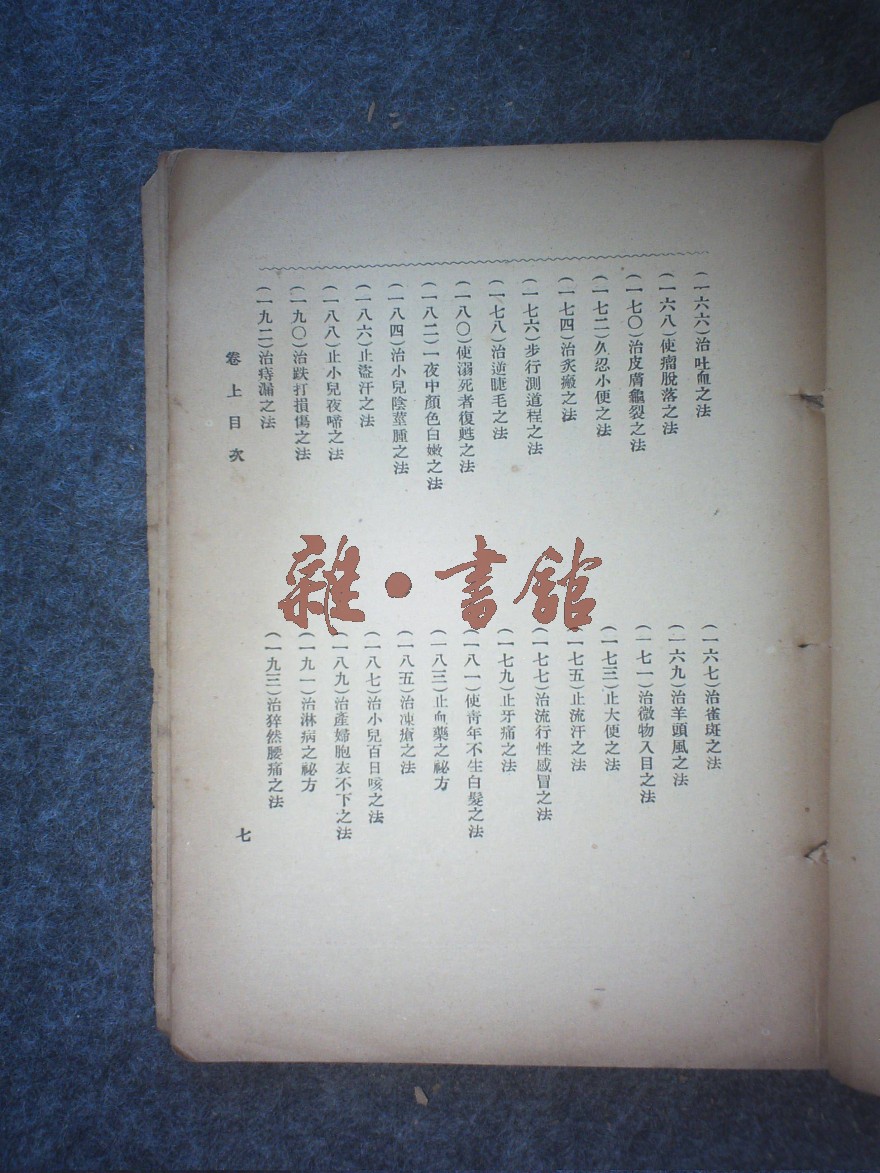 (一六六)治吐血之法
(一六七)治雀斑之法
(一六八)使瘤脫落之法
(一六九)治羊頭風之法
(一七〇)治皮膚龜裂之法
(一七一)治微物入目之法
(一七二)久忍小便之法
(一七三)止大便之法
(一七四)治炙瘢之法
(一七五)止流汗之法
(一七六)步行測道程之法
(一七七)治流行性感冒之法
(一七八)治逆睫毛之法
(一七九)止牙痛之法
(一八〇)使溺死者復甦之法
(一八一)使靑年不生白髮之法
(一八二)一夜中顏色白嫩之法
(一八三)止血藥之祕方
(一八四)治小兒陰莖腫之法
(一八五)治凍瘡之法
(一八六)止盜汗之法
(一八七)治小兒百日咳之法
(一八八)止小兒夜啼之法
(一八九)治產婦胞衣不下之法
(一九〇)治跌打損傷之法
(一九一)治淋病之祕方
(一九二)治痔漏之法
(一九三)治猝然腰痛之法
卷上目次
七
雜·書館